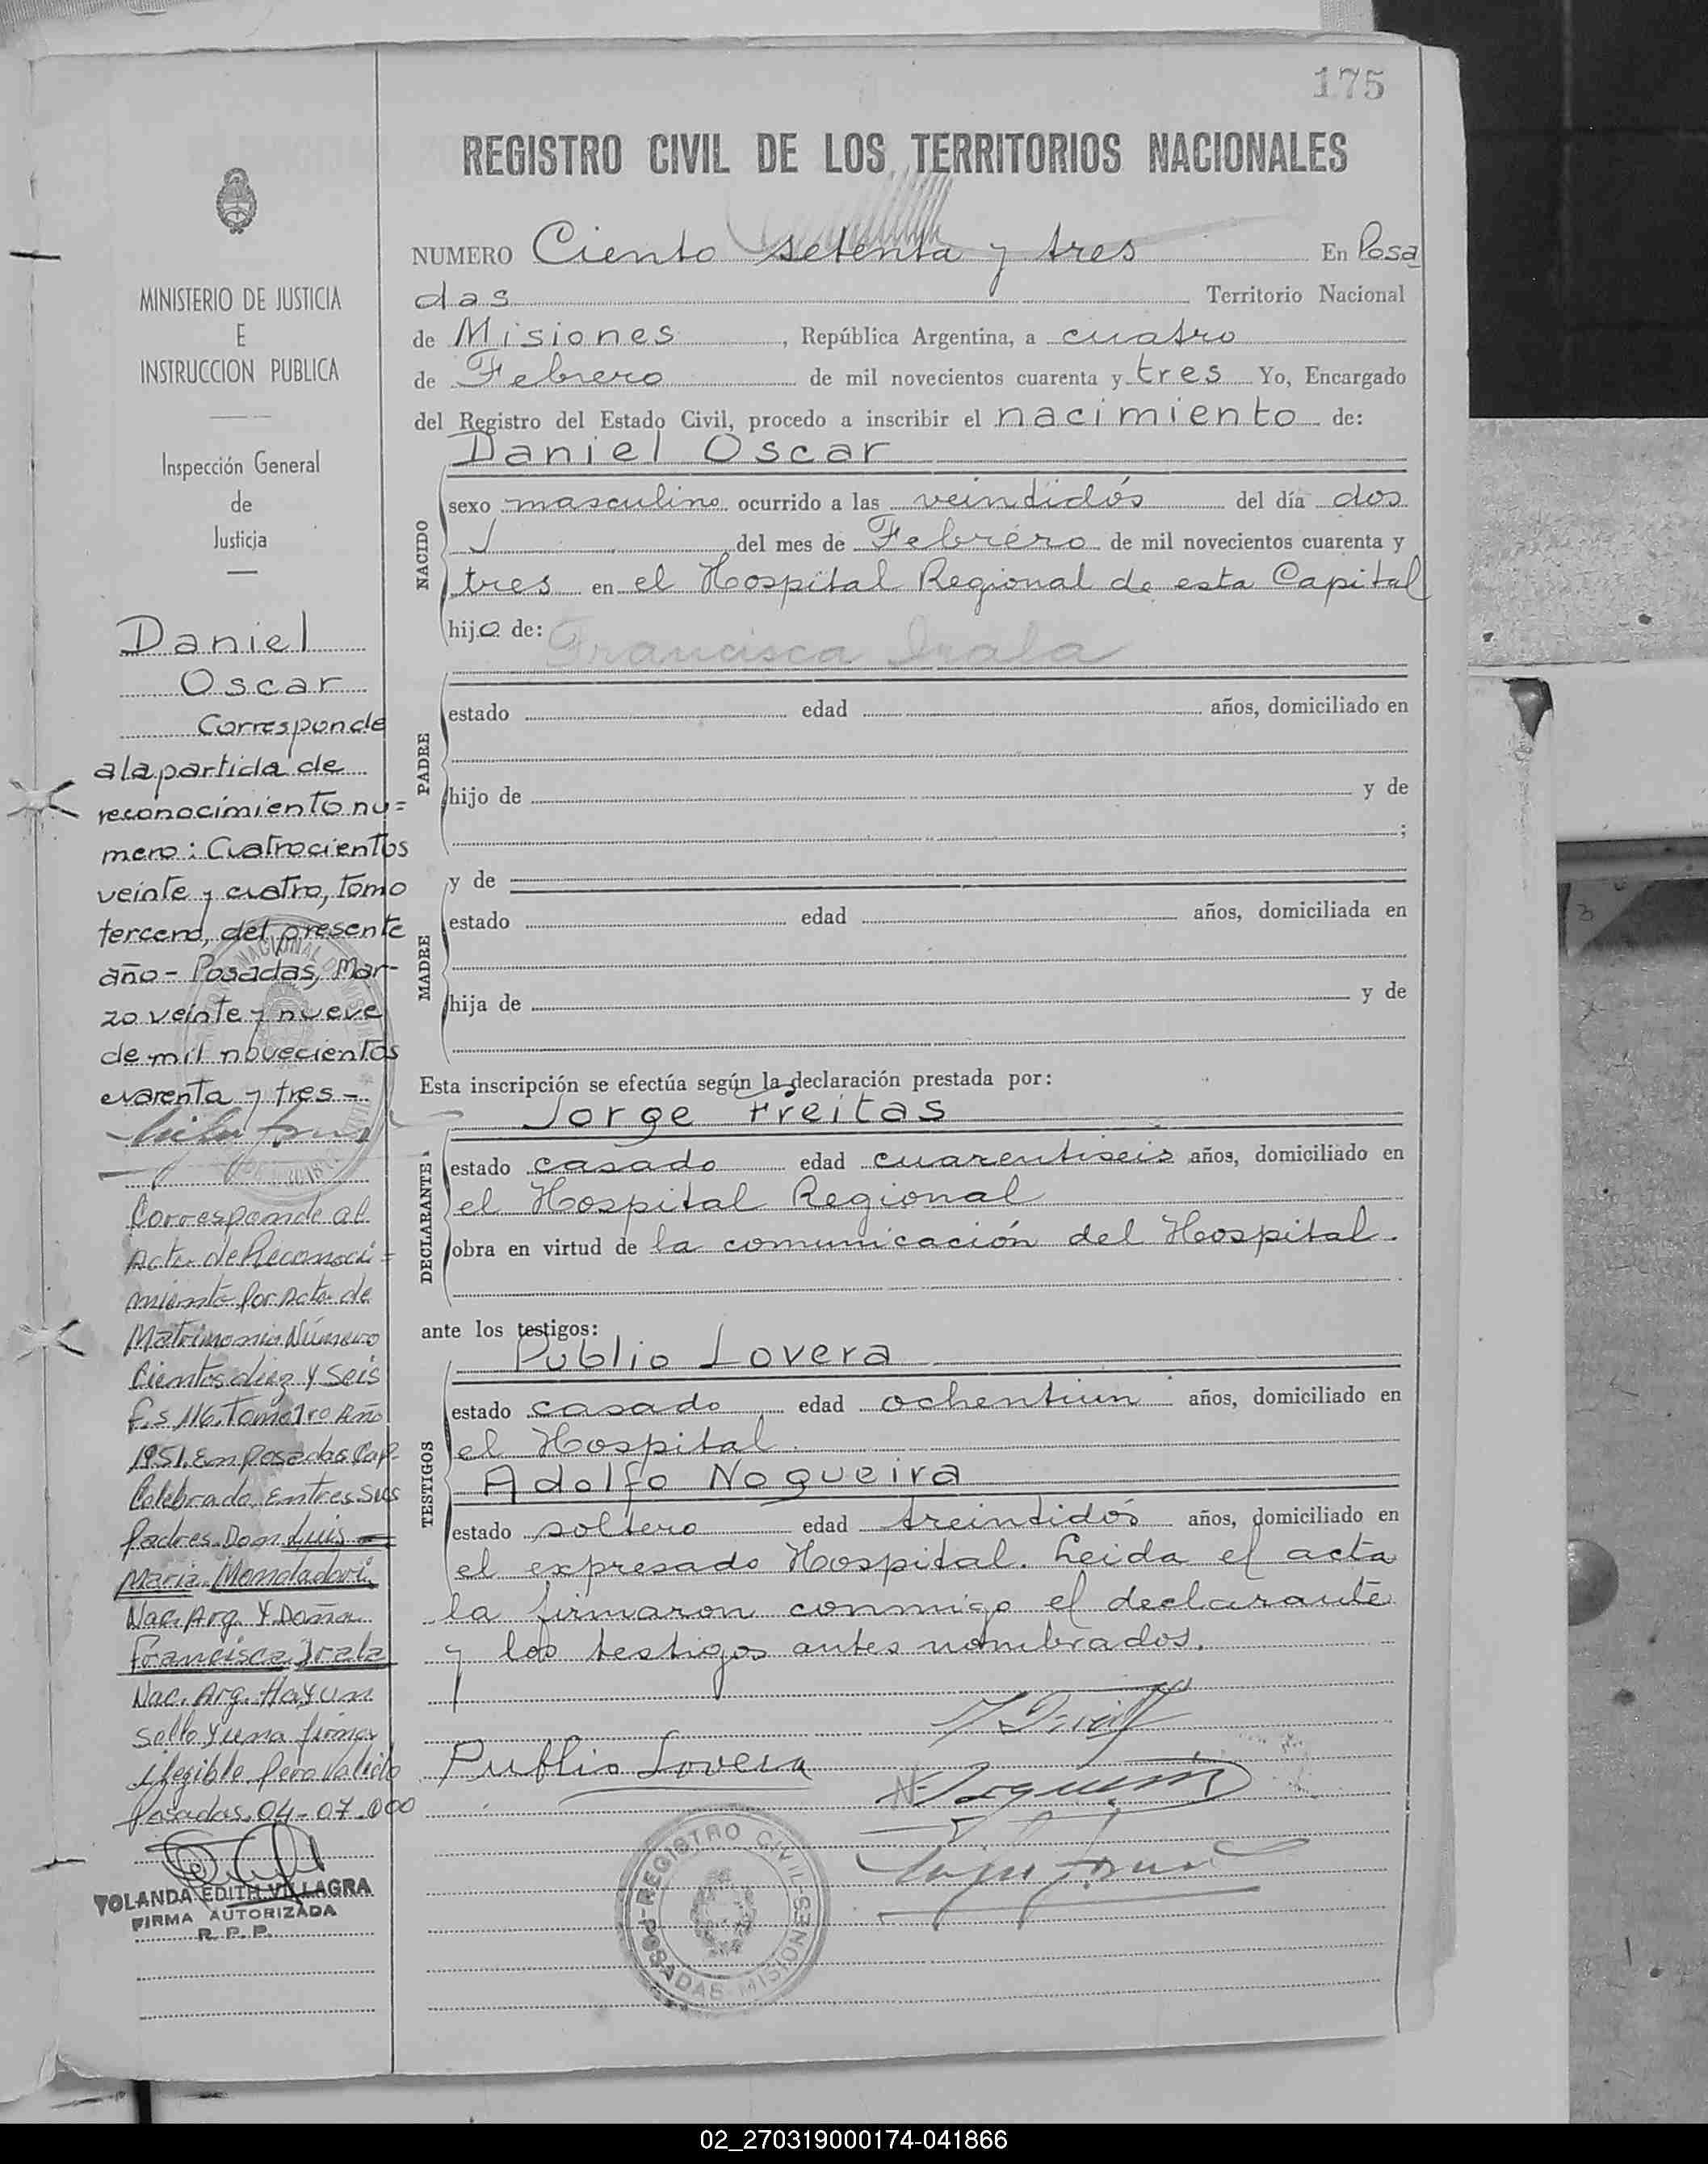 175
REGISTRO CIVIL DE LOS TERRITORIOS NACIONALES
NUMERO Ciento setenta y tres En Posa
das Territorio Nacional
de Misiones, República Argentina, a cuatro
de Febrero de mil novecientos cuarenta y tres Yo, Encargado
del Registro del Estado Civil, procedo a inscribir el nacimiento de:
Daniel Oscar
NACIDO
sexo masculino ocurrido a las veintidós del día dos
del mes de Febrero de mil novecientos cuarenta y
tres en el Hospital Regional de esta Capital
hijo de:
Francisca Irala
PADRE
estado edad años, domiciliado en
hijo de y de
;
y de
MADRE
estado edad años, domiciliada en
hija de y de
Esta inscripción se efectúa según la declaración prestada por:
Jorge Freitas
DECLARANTE
estado casado edad cuarentiseis años, domiciliado en
el Hospital Regional
obra en virtud de la comunicación del Hospital.
ante los testigos:
Publio Lovera
TESTIGOS
estado casado edad ochentiun años, domiciliado en
el Hospital
Adolfo Nogueira
estado soltero edad treintidós años, domiciliado en
el expresado Hospital. Leida el acta
la firmaron conmigo el declarante
y los testigos antes nombrados.
Publio Lovera
REGISTRO CIVIL
POSADAS MISIONES
MINISTERIO DE JUSTICIA
E
INSTRUCCION PUBLICA
Inspección General
de
Justicia
Daniel
Oscar
Corresponde
a la partida de
reconocimiento nu=
mero: Cuatrocientos
veinte y cuatro, tomo
tercero, del presente
año - Posadas, Mar-
zo veinte y nueve
de mil novecientos
cuarenta y tres -
Corresponde al
Acta de Reconoci=
miento por Acta de
Matrimonio Número
Cientos diez y seis
f.s 116. Tomo 1ro Año
1951. En Posadas Cap-
Celebrado Entres Sus
Padres Don Luis
Maria Mondadori
Nac. Arg. Y Doña
Francisca Irala
Nac. Arg. Hay un
Sello y una firma
ilegible Pero Valido
Posadas, 04-07-000
YOLANDA EDITH VILLAGRA
FIRMA AUTORIZADA
R. P. P.
02_270319000174-041866